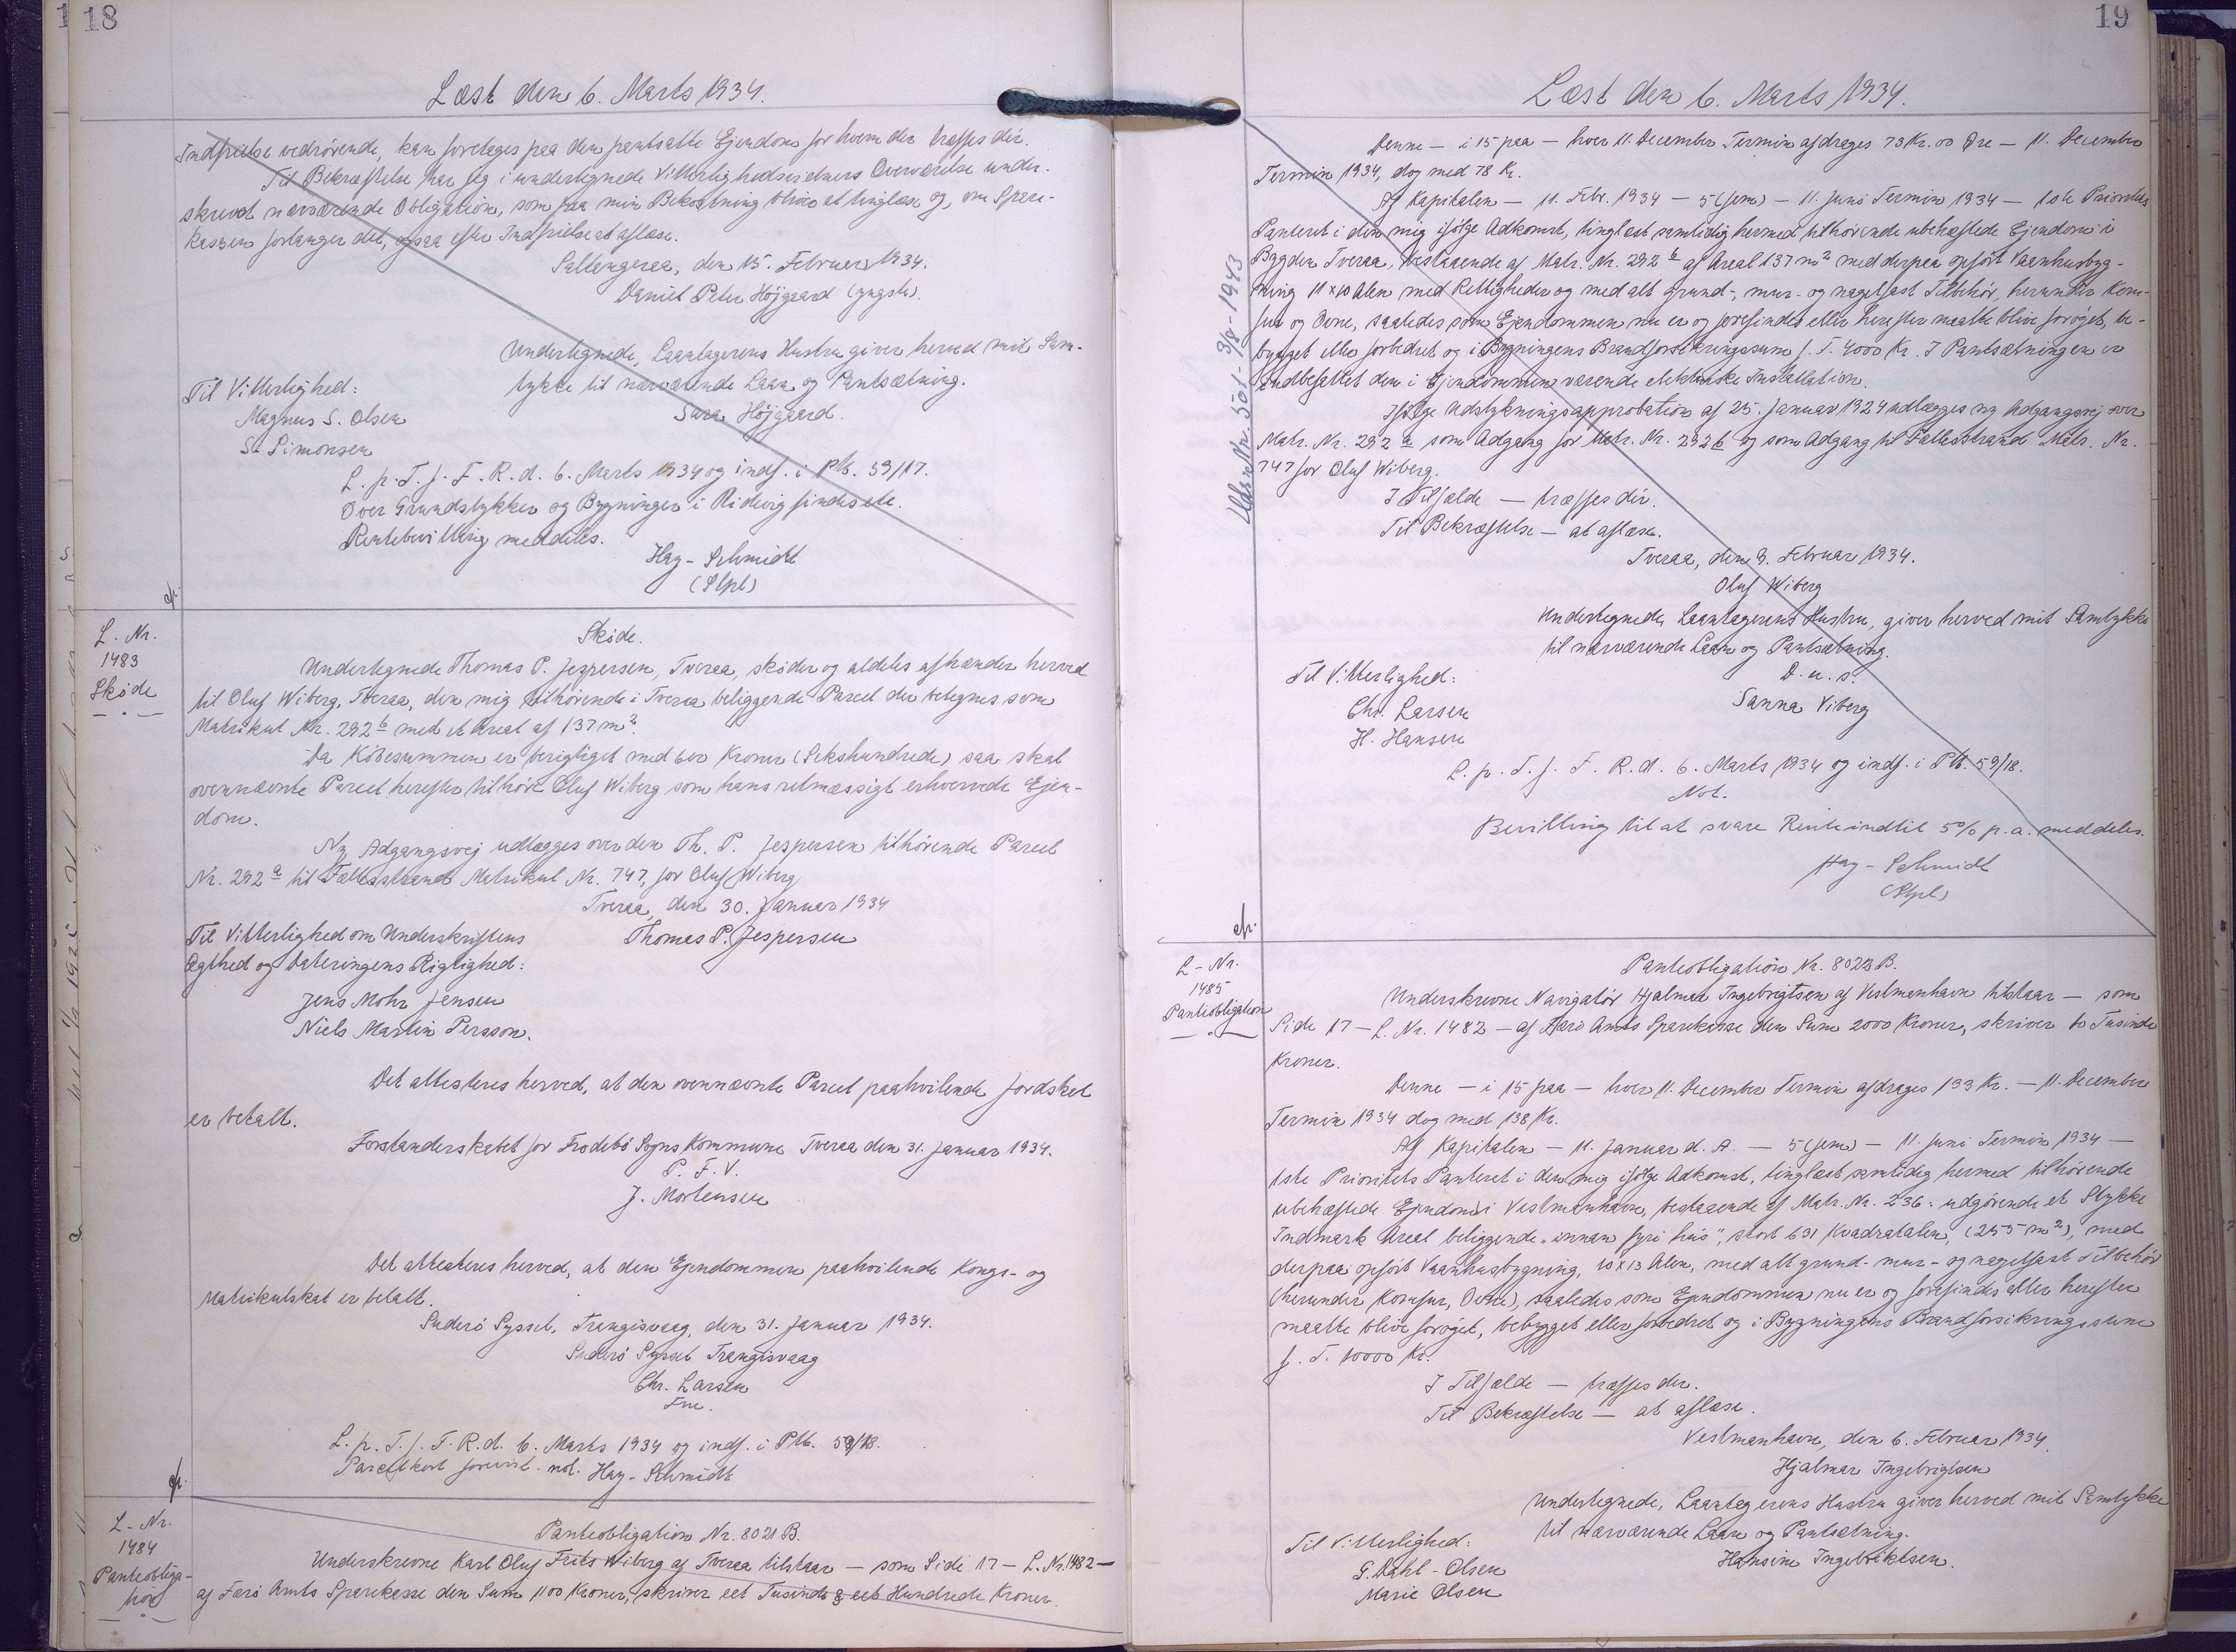 18
Læst den 6. Marts 1934.
Indfrielse vedrörende, kan foretages paa den pantsatte Ejendom for hvem der træffes dér.
Til Bekræftelse har jeg i undertegnede Vitterlighedsvidners Overværelse under-
skrevet nærværende Obligation, som paa min Bekostning bliver at tinglæse og, om Spare-
kassen forlanger det, ogsaa efter Indfrielse at aflæse.
Saltangeraa, den 15. Februar 1934.
Daniel Peter Höjgaard (yngste).
Undertegnede, Laantagerens Hustru giver herved mit Sam-
tykke til nærværende Laan og Pantsætning.
Sara Höjgaard.
Til Vitterlighed:
Magnus S. Olsen
S. Simonsen
L. p. T. f. F. R. d. 6. Marts 1934 og indf. i Ptb. 59/17.
Over Grundstykker og Bygninger i Ridevig findes ete.
Rentebevilling meddeles.
Hay-Schmidt
(Stpl)
L. Nr.
1483
Sköde
Sköde.
Undertegnede Thomas P. Jespersen, Tveraa, sköder og aldeles afhænder herved
til Oluf Wiberg, Tveraa, den mig tilhörende i Tveraa beliggende Parcel der betegnes som
Matrikul Nr. 292 b med et Areal af 137 m².
Da Köbesummen er berigtiget med 600 Kroner (Sekshundrede) saa skal
ovennævnte Parcel herefter tilhöre Oluf Wiberg som hans retmæssigt erhvervede Ejen-
dom.
Ny Adgangsvej udlægges over den Th. P. Jespersen tilhörende Parcel
Nr. 292 a til Fællesstrand Matrikul Nr. 747, for Oluf Wiberg
Tveraa, den 30. Januar 1934
Thomas P. Jespersen
Til Vitterlighed om Underskriftens
Ægthed og Dateringens Rigtighed:
Jens Mohr Jensen
Niels Martin Persson.
Det attesteres herved, at den ovennævnte Parcel paahvilende Jordskat
er betalt.
Forstanderskabet for Frodebö Sogns Kommune Tveraa den 31. Januar 1934.
P. F. V.
J. Mortensen
Det attesteres herved, at den Ejendommen paahvilende Kongs- og
Matrikulskat er betalt.
Suderö Syssel, Trangisvaag, den 31. Januar 1934.
Suderö Syssel Trangisvaag
Chr. Larsen
Fm.
L. p. T. f. F. R. d. 6. Marts 1934 og indf. i Ptb. 59/18.
Parcelkort forevist. not. Hay-Schmidt
L-Nr.
1484
Panteobliga-
tion
Panteobligation Nr. 8021 B.
Underskrevne Karl Oluf Frits Wiberg af Tveraa tilstaar — som Side 17 — L. Nr. 1482 —
af Færö Amts Sparekasse den Sum 1100 Kroner, skriver eet Tusinde & eet Hundrede Kroner.
19
Læst den 6. Marts 1934.
Denne — i 15 paa — hver 11. December Termin afdrages 73 Kr. 00 Öre — 11. December
Termin 1934, dog med 78 Kr.
Af Kapitalen — 11. Febr. 1934 — 5 (fem) — 11. Juni Termin 1934 — 1ste Prioritets
Panteret i den mig ifölge Adkomst, tinglæst samtidig hermed tilhörende ubehæftede Ejendom i
Bygden Tveraa, bestaaende af Matr. Nr. 292 b af Areal 137 m² med derpaa opfört Vaanhusbyg-
ning 11 x 10 Alen med Rettigheder og med alt grund-, mur- og nagelfast Tilbehör, herunder Kom-
fur og Ovne, saaledes som Ejendommen nu er og forefindes eller herefter maatte blive foröget, be-
bygget eller forbedret og i Bygningens Brandforsikringssum f. T. 4000 Kr. I Pantsætningen er
indbefattet den i Ejendommen værende elektriske Installation.
Ifölge Udstykningsapprobation af 25. Januar 1924 udlægges ny Adgangsvej over
Matr. Nr. 292 a som Adgang for Matr. Nr. 292 b og som Adgang til Fællesstrand Matr. Nr.
747 for Oluf Wiberg.
I Tilfælde — træffes dér.
Til Bekræftelse — at aflæse.
Tveraa, den 9. Februar 1934.
Oluf Wiberg
Undertegnede, Laantagerens Hustru, giver herved mit Samtykke
til nærværende Laan og Pantsætning.
D. u. s.
Sanna Viberg
Til Vitterlighed:
Chr. Larsen
H. Hansen
L. p. T. f. F. R. d. 6. Marts 1934 og indf. i Ptb. 59/18.
Not.
Bevilling til at svare Rente indtil 5% p. a. meddeles.
Hay-Schmidt
(Stpl)
L-Nr.
1485
Panteobligation
Panteobligation Nr. 8023 B.
Underskrevne Navigatör Hjalmar Ingebrigtsen af Vestmanhavn tilstaar — som
Side 17 — L. Nr. 1482 — af Færö Amts Sparekasse den Sum 2000 Kroner, skriver to Tusinde
Kroner.
Denne — i 15 paa — hver 11. December Termin afdrages 133 Kr. — 11. December
Termin 1934 dog med 138 Kr.
Af Kapitalen — 11. Januar d. A. — 5 (fem) — 11. Juni Termin 1934 —
1ste Prioritets Panteret i den mig ifölge Adkomst, tinglæst samtidig hermed tilhörende
ubehæftede Ejendom i Vestmanhavn, bestaaende af Matr. Nr. 236: udgörende et Stykke
Indmark Areal beliggende „innan fyri hús", stort 691 Kvadratalen, (255 m²), med
derpaa opfört Vaanhusbygning, 10 x 13 Alen, med alt grund- mur- og nagelfast Tilbehör
(herunder Komfur, Ovne), saaledes som Ejendommen nu er og forefindes eller herefter
maatte blive foröget, bebygget eller forbedret og i Bygningens Brandforsikringssum
f. T. 10000 Kr.
I Tilfælde — træffes der.
Til Bekræftelse — at aflæse.
Vestmanhavn, den 6. Februar 1934.
Hjalmar Ingebrigtsen
Undertegnede, Laantagerens Hustru giver herved mit Samtykke
til nærværende Laan og Pantsætning.
Hansine Ingebriktsen.
Til Vitterlighed:
G. Dahl-Olsen
Marie Olsen